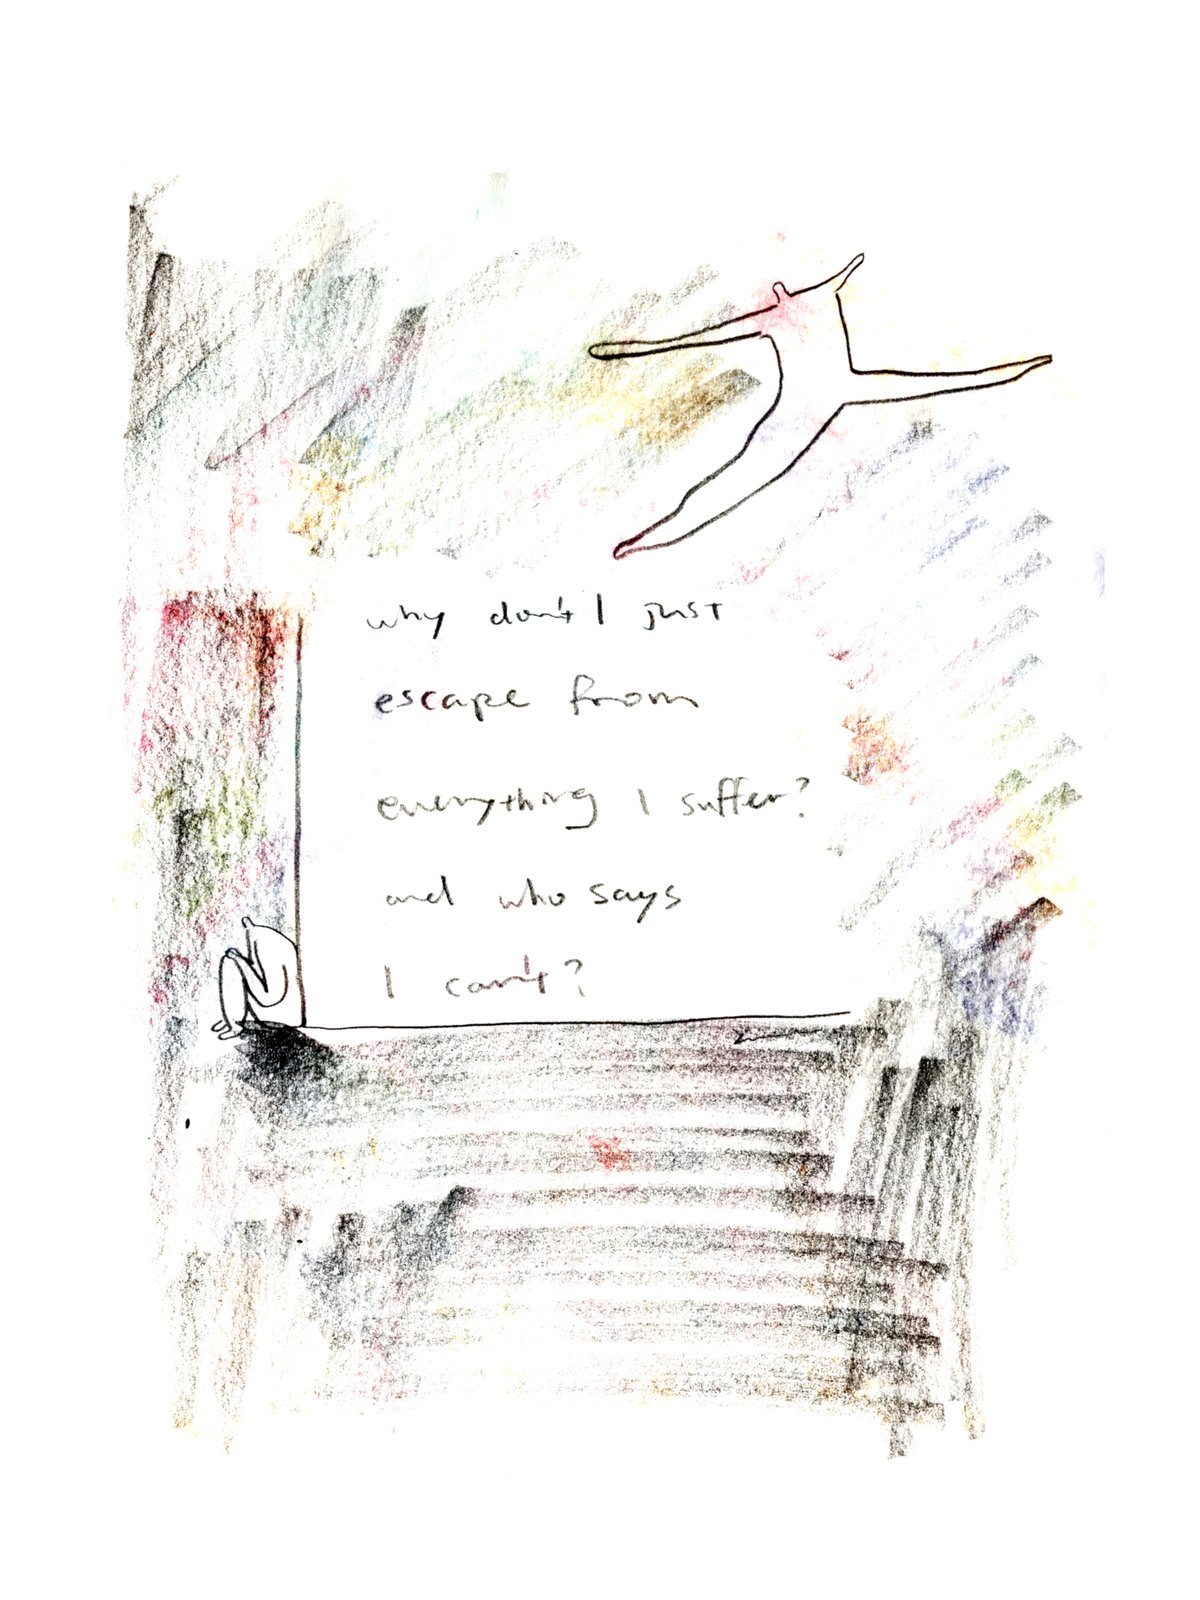 why don't I just
escape from
everything I suffer?
and who says
I can't?